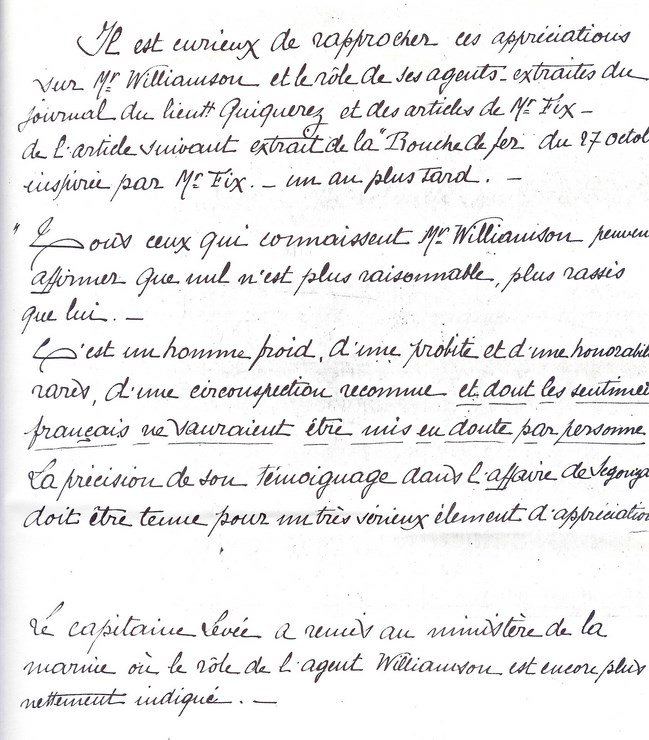 Il est curieux de rapprocher ces appréciations
sur Mr Williamson et le rôle de ses agents - extraites du
journal du lieutt Quiquerez et des articles de Mr Fix -
de l'article suivant extrait de la "Bouche de fer du 27 octob
inspirée par Mr Fix. - un an plus tard. -
" Tous ceux qui connaissent Mr Williamson peuven
affirmer que nul n'est plus raisonnable, plus rassis
que lui. -
C'est un homme froid, d'une probité et d'une honorabilit
rares, d'une circonspection reconnue et dont les sentimen
français ne sauraient être mis en doute par personne
La précision de son témoignage dans l'affaire de Segonza
doit être tenue pour un très sérieux élement d'appréciation
Le capitaine Levée a remis au ministère de la
marine où le rôle de l'agent Williamson est encore plus
nettement indiqué. -